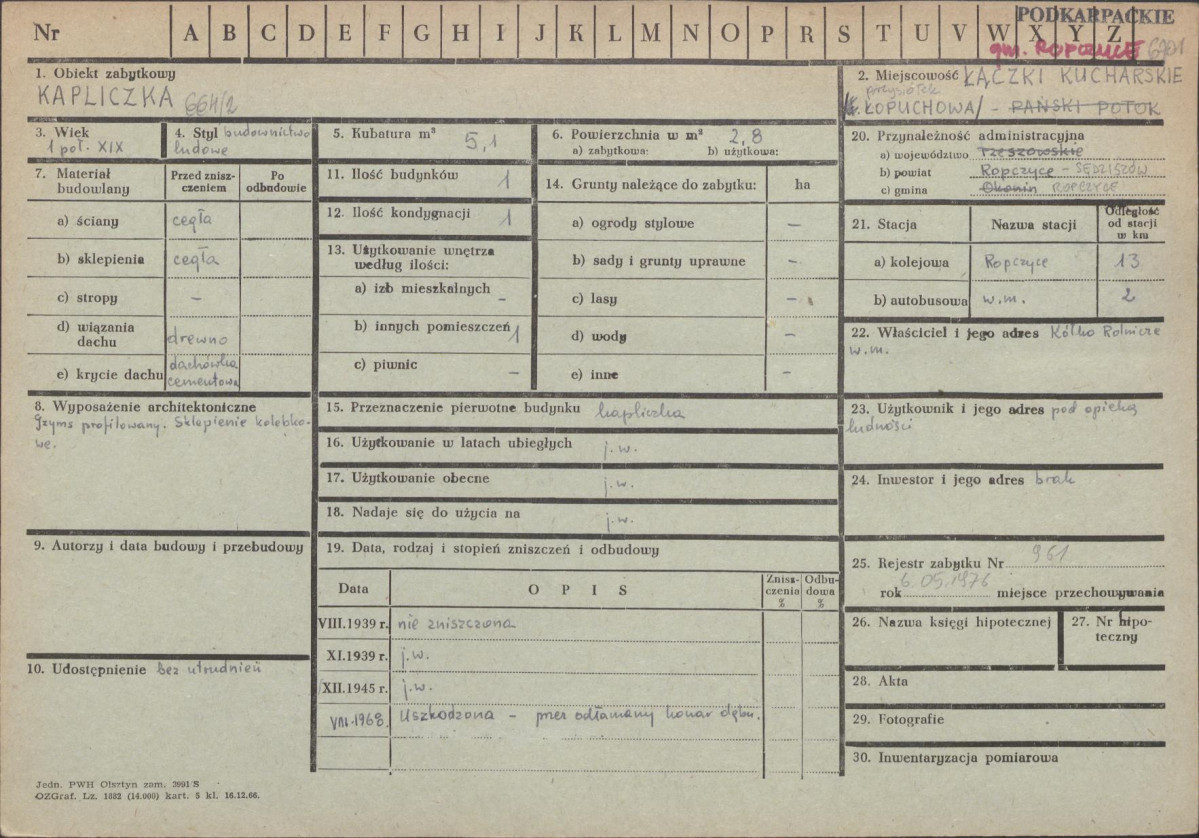 PODKARPACKIE
Nr A B C D E F G H I J K L M N O P R S T U V W X Y Z
gm. ROPCZYCE 6901
1. Obiekt zabytkowy
KAPLICZKA 664/2
2. Miejscowość ŁĄCZKI KUCHARSKIE
przysiółek
ŁOPUCHOWA/ - PAŃSKI POTOK
3. Wiek
1 poł. XIX
4. Styl budownictwo
ludowe
5. Kubatura m³
5,1
6. Powierzchnia w m² 2,8
a) zabytkowa: b) użytkowa:
7. Materiał
budowlany
Przed znisz-
czeniem
Po
odbudowie
a) ściany cegła
b) sklepienia cegła
c) stropy -
d) wiązania
dachu drewno
e) krycie dachu dachówka
cementowa
8. Wyposażenie architektoniczne
Gzyms profilowany. Sklepienie kolebko-
we.
9. Autorzy i data budowy i przebudowy
10. Udostępnienie Bez utrudnień
11. Ilość budynków 1
12. Ilość kondygnacji 1
13. Użytkowanie wnętrza
według ilości:
a) izb mieszkalnych -
b) innych pomieszczeń 1
c) piwnic -
14. Grunty należące do zabytku: ha
a) ogrody stylowe -
b) sady i grunty uprawne -
c) lasy -
d) wody -
e) inne -
15. Przeznaczenie pierwotne budynku kapliczka
16. Użytkowanie w latach ubiegłych j.w.
17. Użytkowanie obecne j.w.
18. Nadaje się do użycia na j.w.
19. Data, rodzaj i stopień zniszczeń i odbudowy
Data O P I S
Znisz-
czenia
%
Odbu-
dowa
%
VIII.1939 r. nie zniszczona
XI.1939 r. j.w.
XII.1945 r. j.w.
VIII.1968. Uszkodzona - przez odłamany konar dębu.
20. Przynależność administracyjna
a) województwo Rzeszowskie
b) powiat Ropczyce - SĘDZISZÓW
c) gmina Okonin ROPCZYCE
21. Stacja Nazwa stacji
Odległość
od stacji
w km
a) kolejowa Ropczyce 13
b) autobusowa w.m. 2
22. Właściciel i jego adres Kółko Rolnicze
w.m.
23. Użytkownik i jego adres pod opieką
ludności
24. Inwestor i jego adres brak
25. Rejestr zabytku Nr 961
rok 6.05.1976 miejsce przechowywania
26. Nazwa księgi hipotecznej
27. Nr hipo-
teczny
28. Akta
29. Fotografie
30. Inwentaryzacja pomiarowa
Jedn. PWH Olsztyn zam. 2991 S
OZGraf. Lz. 1882 (14.000) kart. 5 kl. 16.12.66.